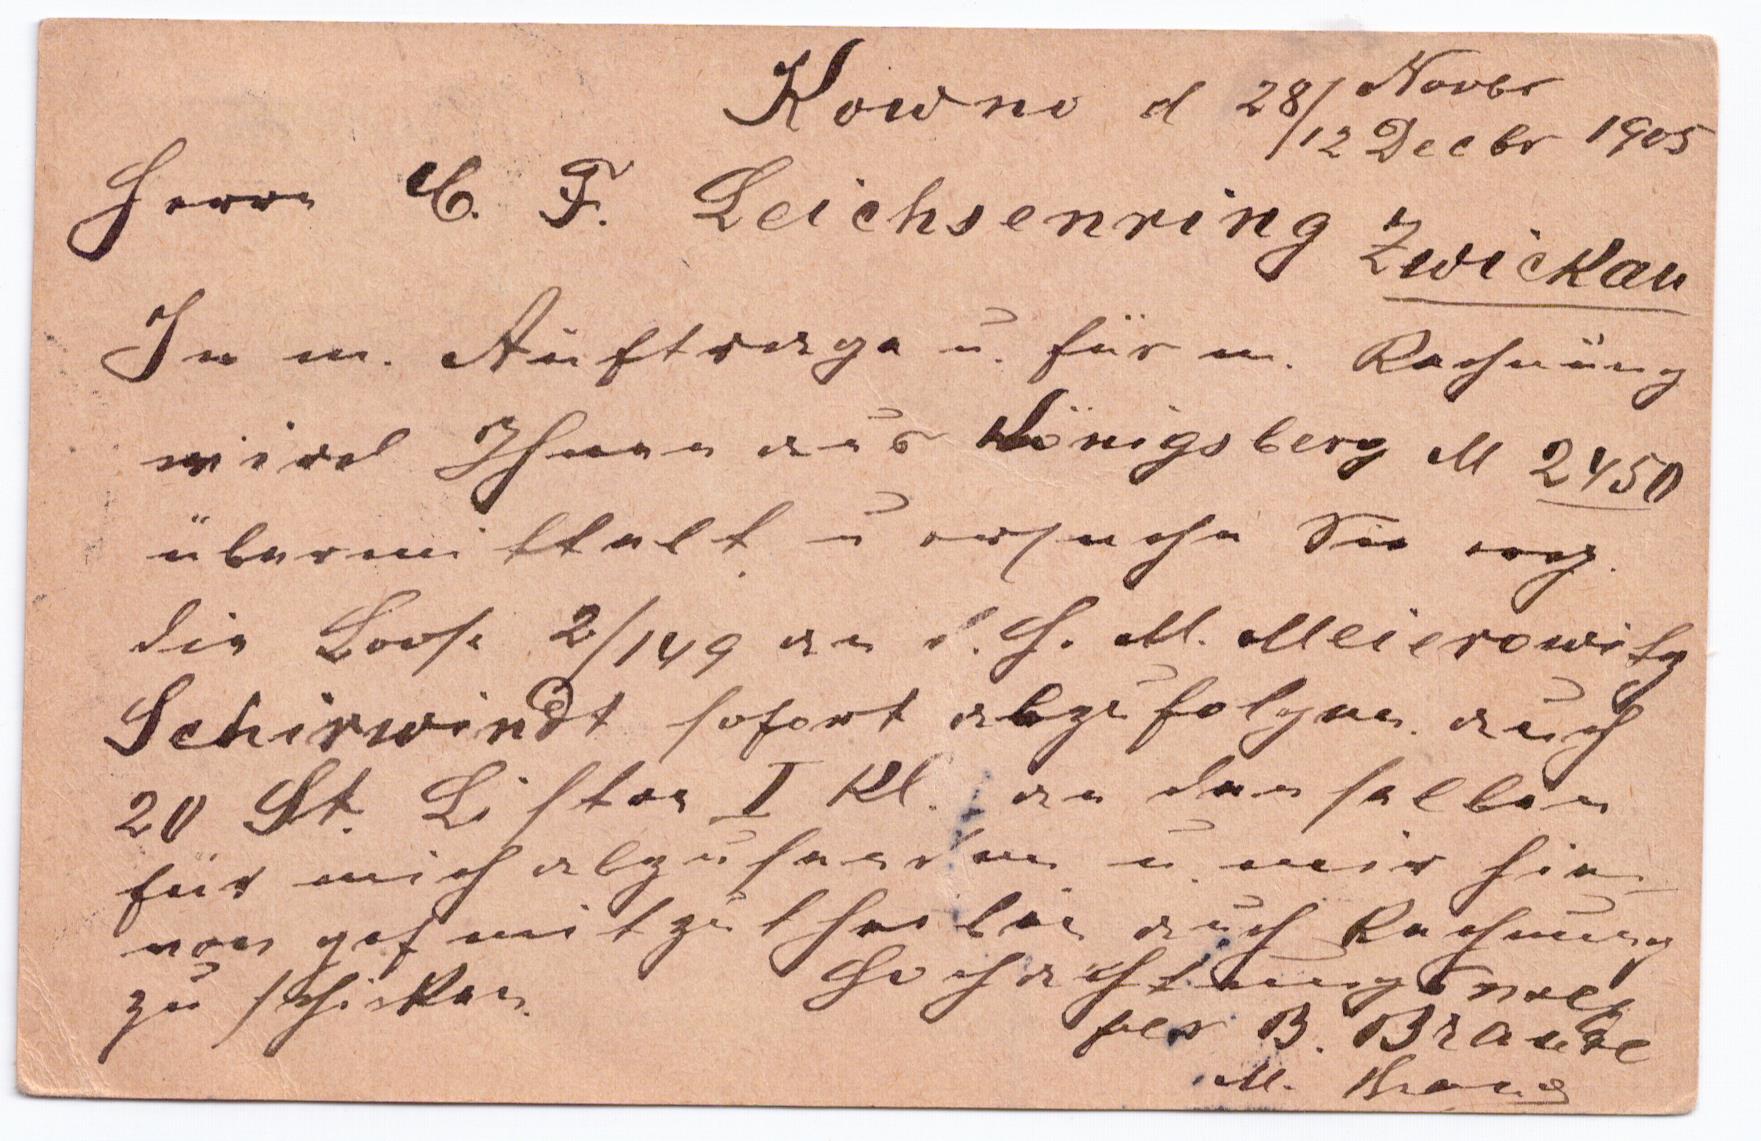 Kowno d 28/12 Novbr Decbr 1905
Herrn C. F. Leichsenring Zwickau
In m. Auftrage u. für m. Rechnung
wird Ihnen aus Königsberg M 2450
übermittelt u ersuche Sie erg.
die Loose 2/149 an d. H. M. Meierowitz
Schirwindt sofort abzufolgen auch
20 St. Listen I Kl. an denselben
für mich abzusenden u. mir hier-
von gef mitzutheilen auch Rechnung
zu schicken. Hochachtungsvoll
per B. Braude
M.